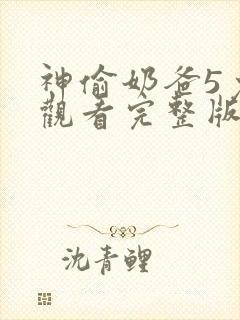 神偷奶爸5
觀看完整版
沈青鲤